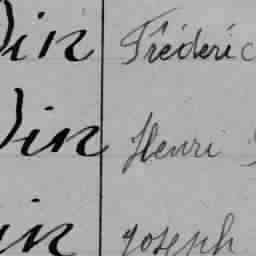 Din Fréderic
Din Henri
in Joseph